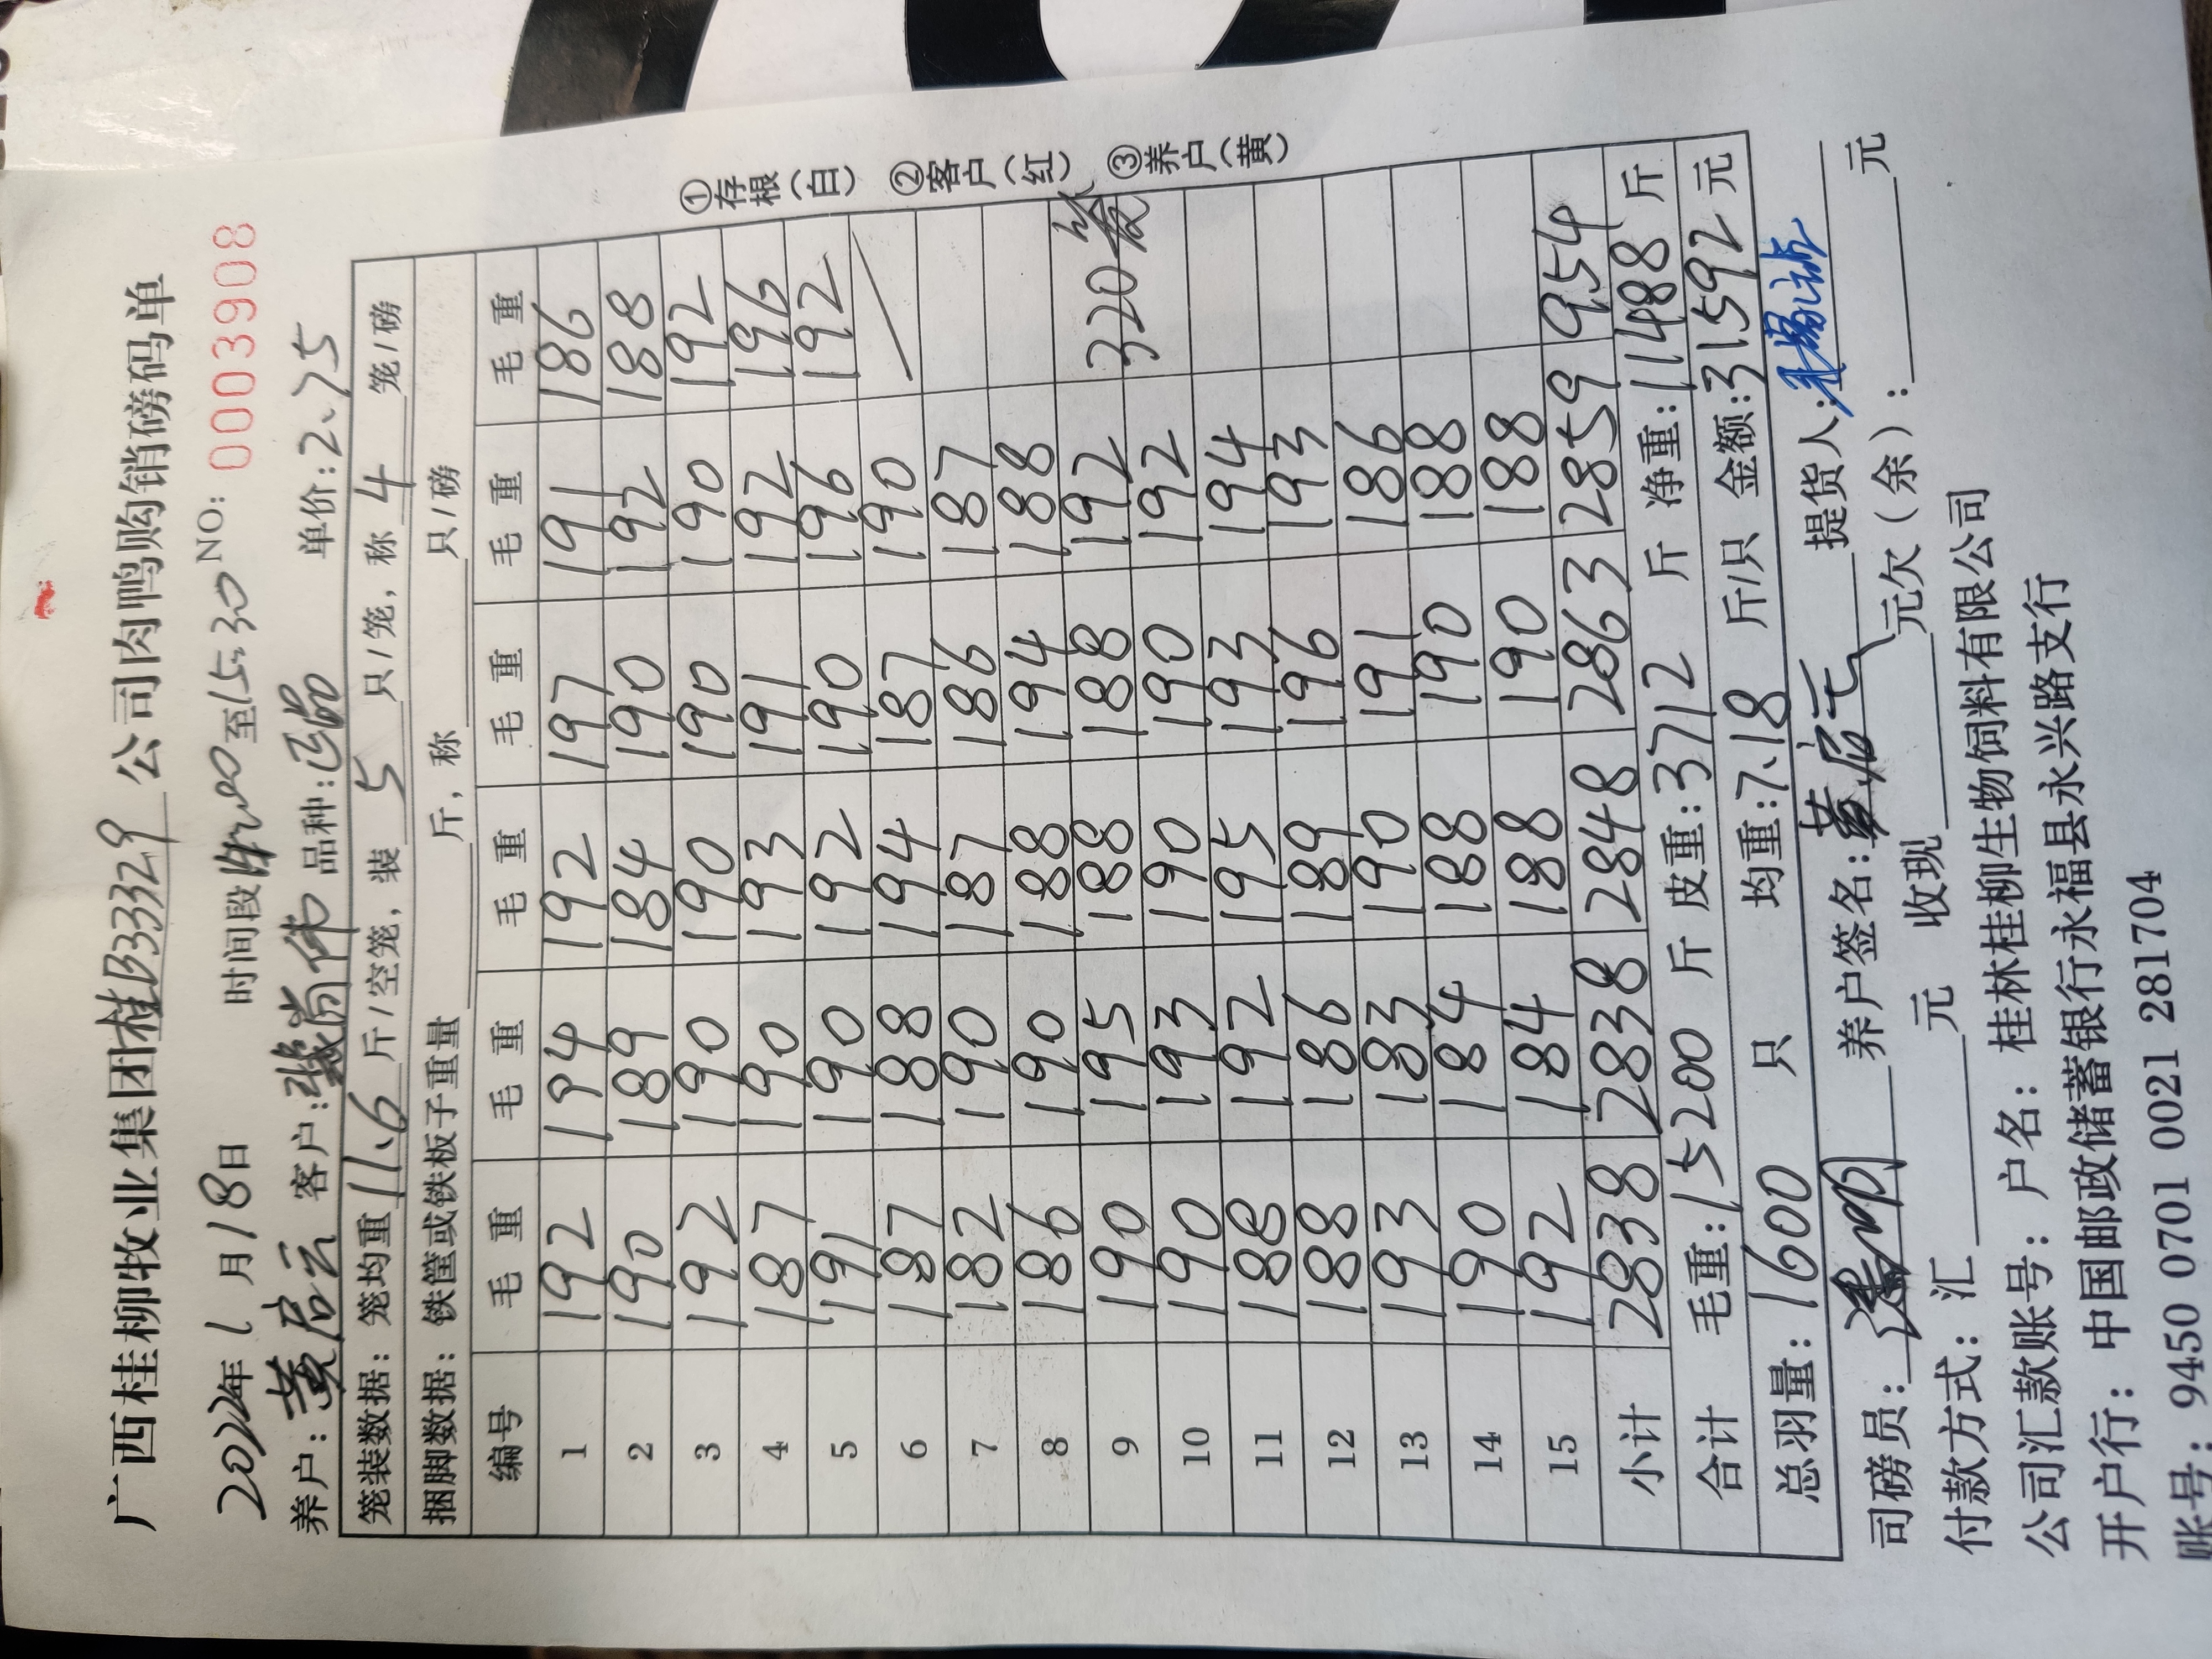 广西桂柳牧业集团桂B33329公司肉鸭购销磅码单
2024年1月18日 时间段 至15:30 NO: 0003908
养户:黄启云 客户: 尚伟 品种: 品 单价:2.75
笼装数据: 笼均重11.6斤/空笼, 装5只/笼, 称4笼/磅
捆脚数据: 铁筐或铁板子重量 斤, 称 只/磅
编号 毛重 毛重 毛重 毛重 毛重 毛重
1 192 194 192 197 191 186
2 190 189 184 190 192 188
3 192 190 190 190 190 192
4 187 190 193 191 192 196
5 191 190 192 190 196 192
6 187 188 194 187 190
7 182 190 187 186 187
8 186 190 188 194 188
9 190 195 188 188 192 320笼
10 190 193 190 190 192
11 188 192 195 193 194
12 188 186 189 196 193
13 193 183 190 191 186
14 190 184 188 190 188
15 192 184 188 190 188
小计 2838 2838 2848 2863 2859 954
合计 毛重:15200斤 皮重:3712斤 净重:11488斤
总羽量: 1600只 均重:7.18斤/只 金额:31592元
司磅员: 养户签名:黄启云 提货人:
付款方式: 汇 元 收现 元欠(余): 元
公司汇款账号: 户名: 桂林桂柳生物饲料有限公司
开户行: 中国邮政储蓄银行永福县永兴路支行
账号: 9450 0701 0021 281704
①存根(白) ②客户(红) ③养户(黄)